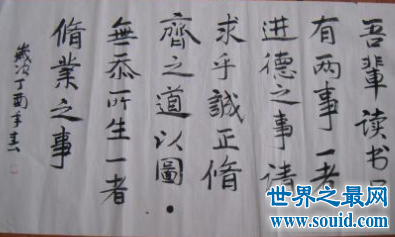 吾輩读书
有两事一者
进德之事
求乎誠正脩
齊之道以圖
無忝所生一者
脩業之事
歲次丁酉年春
世界之最
www.souid.com